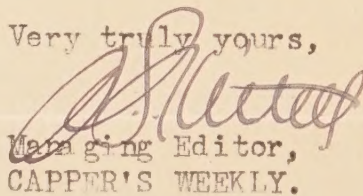 Very truly yours,
Managing Editor,
CAPPER'S WEEKLY.